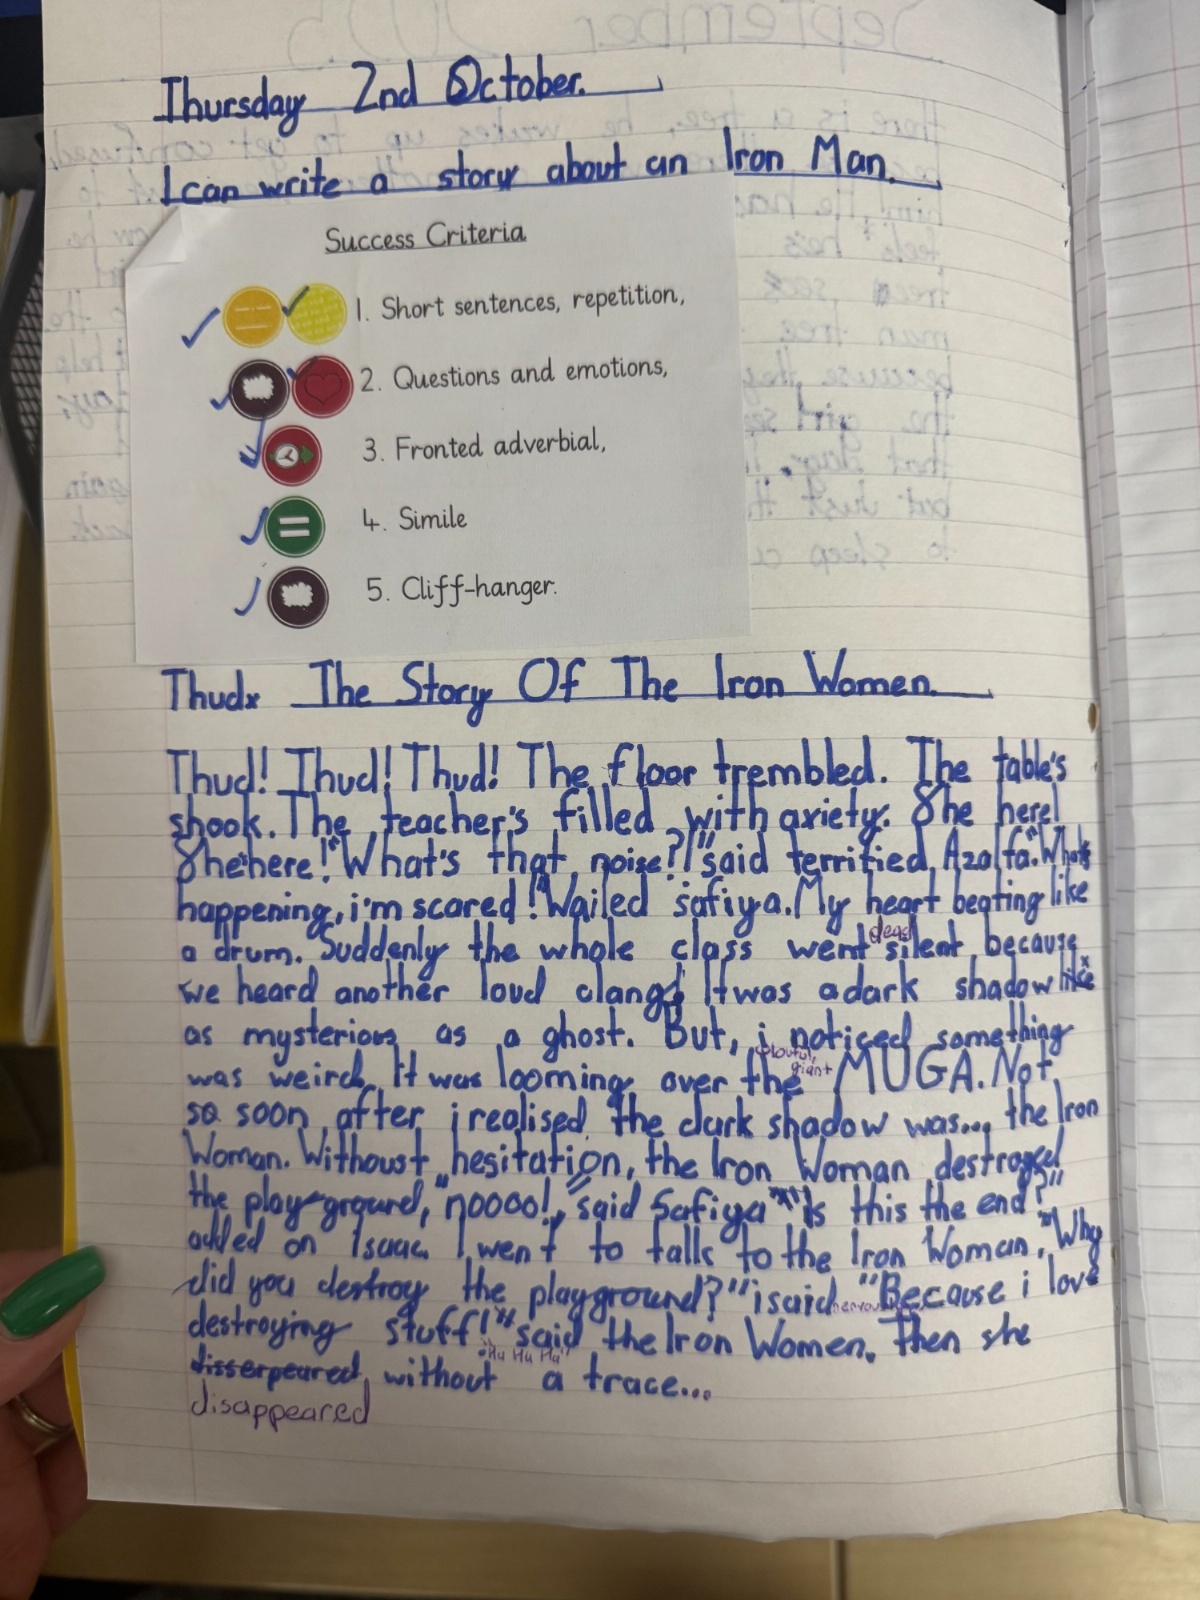 Thursday 2nd October.
I can write a story about an Iron Man.
Success Criteria
1. Short sentences, repetition,
2. Questions and emotions,
3. Fronted adverbial,
4. Simile
5. Cliff-hanger.
Thudx The Story Of The Iron Women.
Thud! Thud! Thud! The floor trembled. The table's
shook. The teacher's filled with axiety. She here!
She here!" What's that noise?!" said terrified Azalfa. "What's
happening, i'm scared!" Wailed safiya. My heart beating like
a drum. Suddenly the whole class went dead silent, because
we heard another loud clang! It was a dark shadow like
as mysterious as a ghost. But, i noticed something
was weird. It was looming over the giant MUGA. Not
so soon after i realised the dark shadow was... the Iron
Woman. Withoust hesitation, the Iron Woman destroyed
the playground, "noooo!," said Safiya "Is this the end?"
added on Isaac. I went to talk to the Iron Woman. "Why
did you destroy the playground?" i said "Because i love
destroying stuff!" said the Iron Women. Then she
"Ha Ha Ha"
disserpeared without a trace...
disappeared